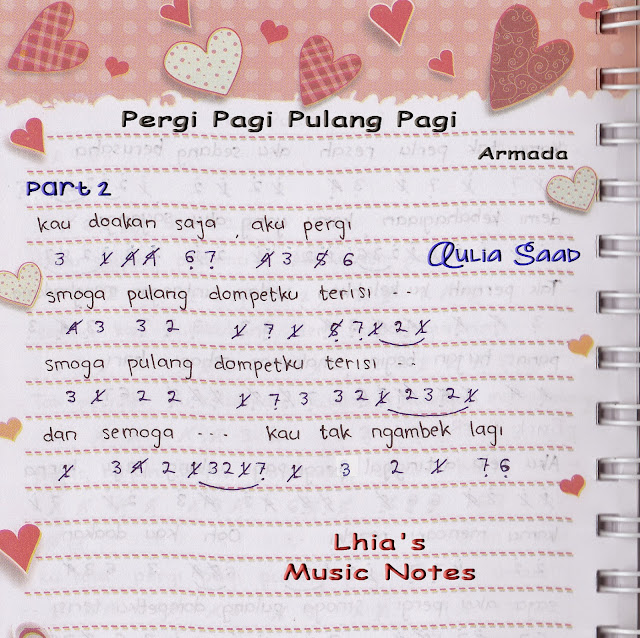 Pergi Pagi Pulang Pagi
Armada
Part 2
kau doakan saja, aku pergi
3 1̸ 4̸ 4̸ 6̣ 7̣ 4̸ 3 5̸ 6
Aulia Saad
smoga pulang dompetku terisi ...
4̸ 3 3 2 1̸ 7̣ 1̸ 5̸̣ 7̣ 1̸ 2 1̸
smoga pulang dompetku terisi ...
3 1̸ 2 2 1̸ 7̣ 3 3 2 1̸ 2 3 2 1̸
dan semoga ... kau tak ngambek lagi
1̸ 3 4̸ 2 1̸ 3 2 1̸ 7̣ 1̸ 3 2 1̸ 7̣ 6̣
Lhia's
Music Notes